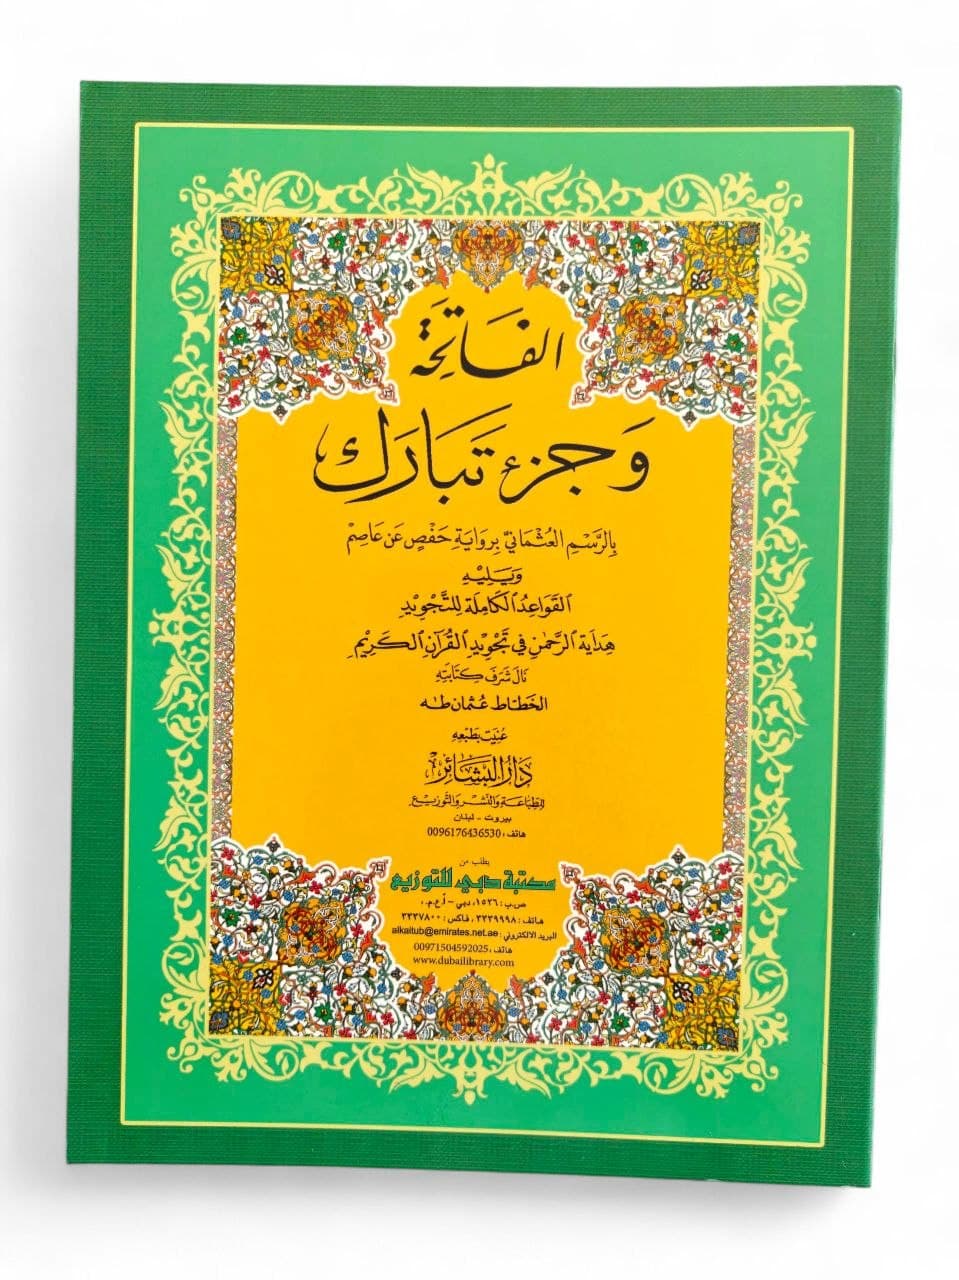 الفَاتِحَة
وَجزءِ تَبَارَكَ
بِالرَّسْمِ العُثْمَانِيِّ بِرِوَايَةِ حَفْصٍ عَن عَاصِمْ
وَيَلِيْهِ
القَوَاعِدُ الكَامِلَة لِلتَّجْوِيْدِ
هِدَايَة الرَّحْمٰنِ فِي تَجْوِيْدِ القُرْآنِ الكَرِيْمِ
نَالَ شَرَفَ كِتَابَتِهِ
الخَطَّاط عُثْمَان طٰه
عُنِيَت بِطَبْعِهِ
دَارُ البَشَائِر
لِلطِّبَاعَةِ وَالنَّشْرِ وَالتَّوْزِيْعِ
بيروت - لبنان
هاتف: 0096176436530
يطلب من
مكتبة دبي للتوزيع
ص.ب: ١٥٢٦، دبي - أ.ع.م.
هاتف: ٣٣٣٩٩٩٨، فاكس: ٣٣٣٧٨٠٠
البريد الالكتروني: alkaitub@emirates.net.ae
هاتف: 00971504592025
www.dubailibrary.com